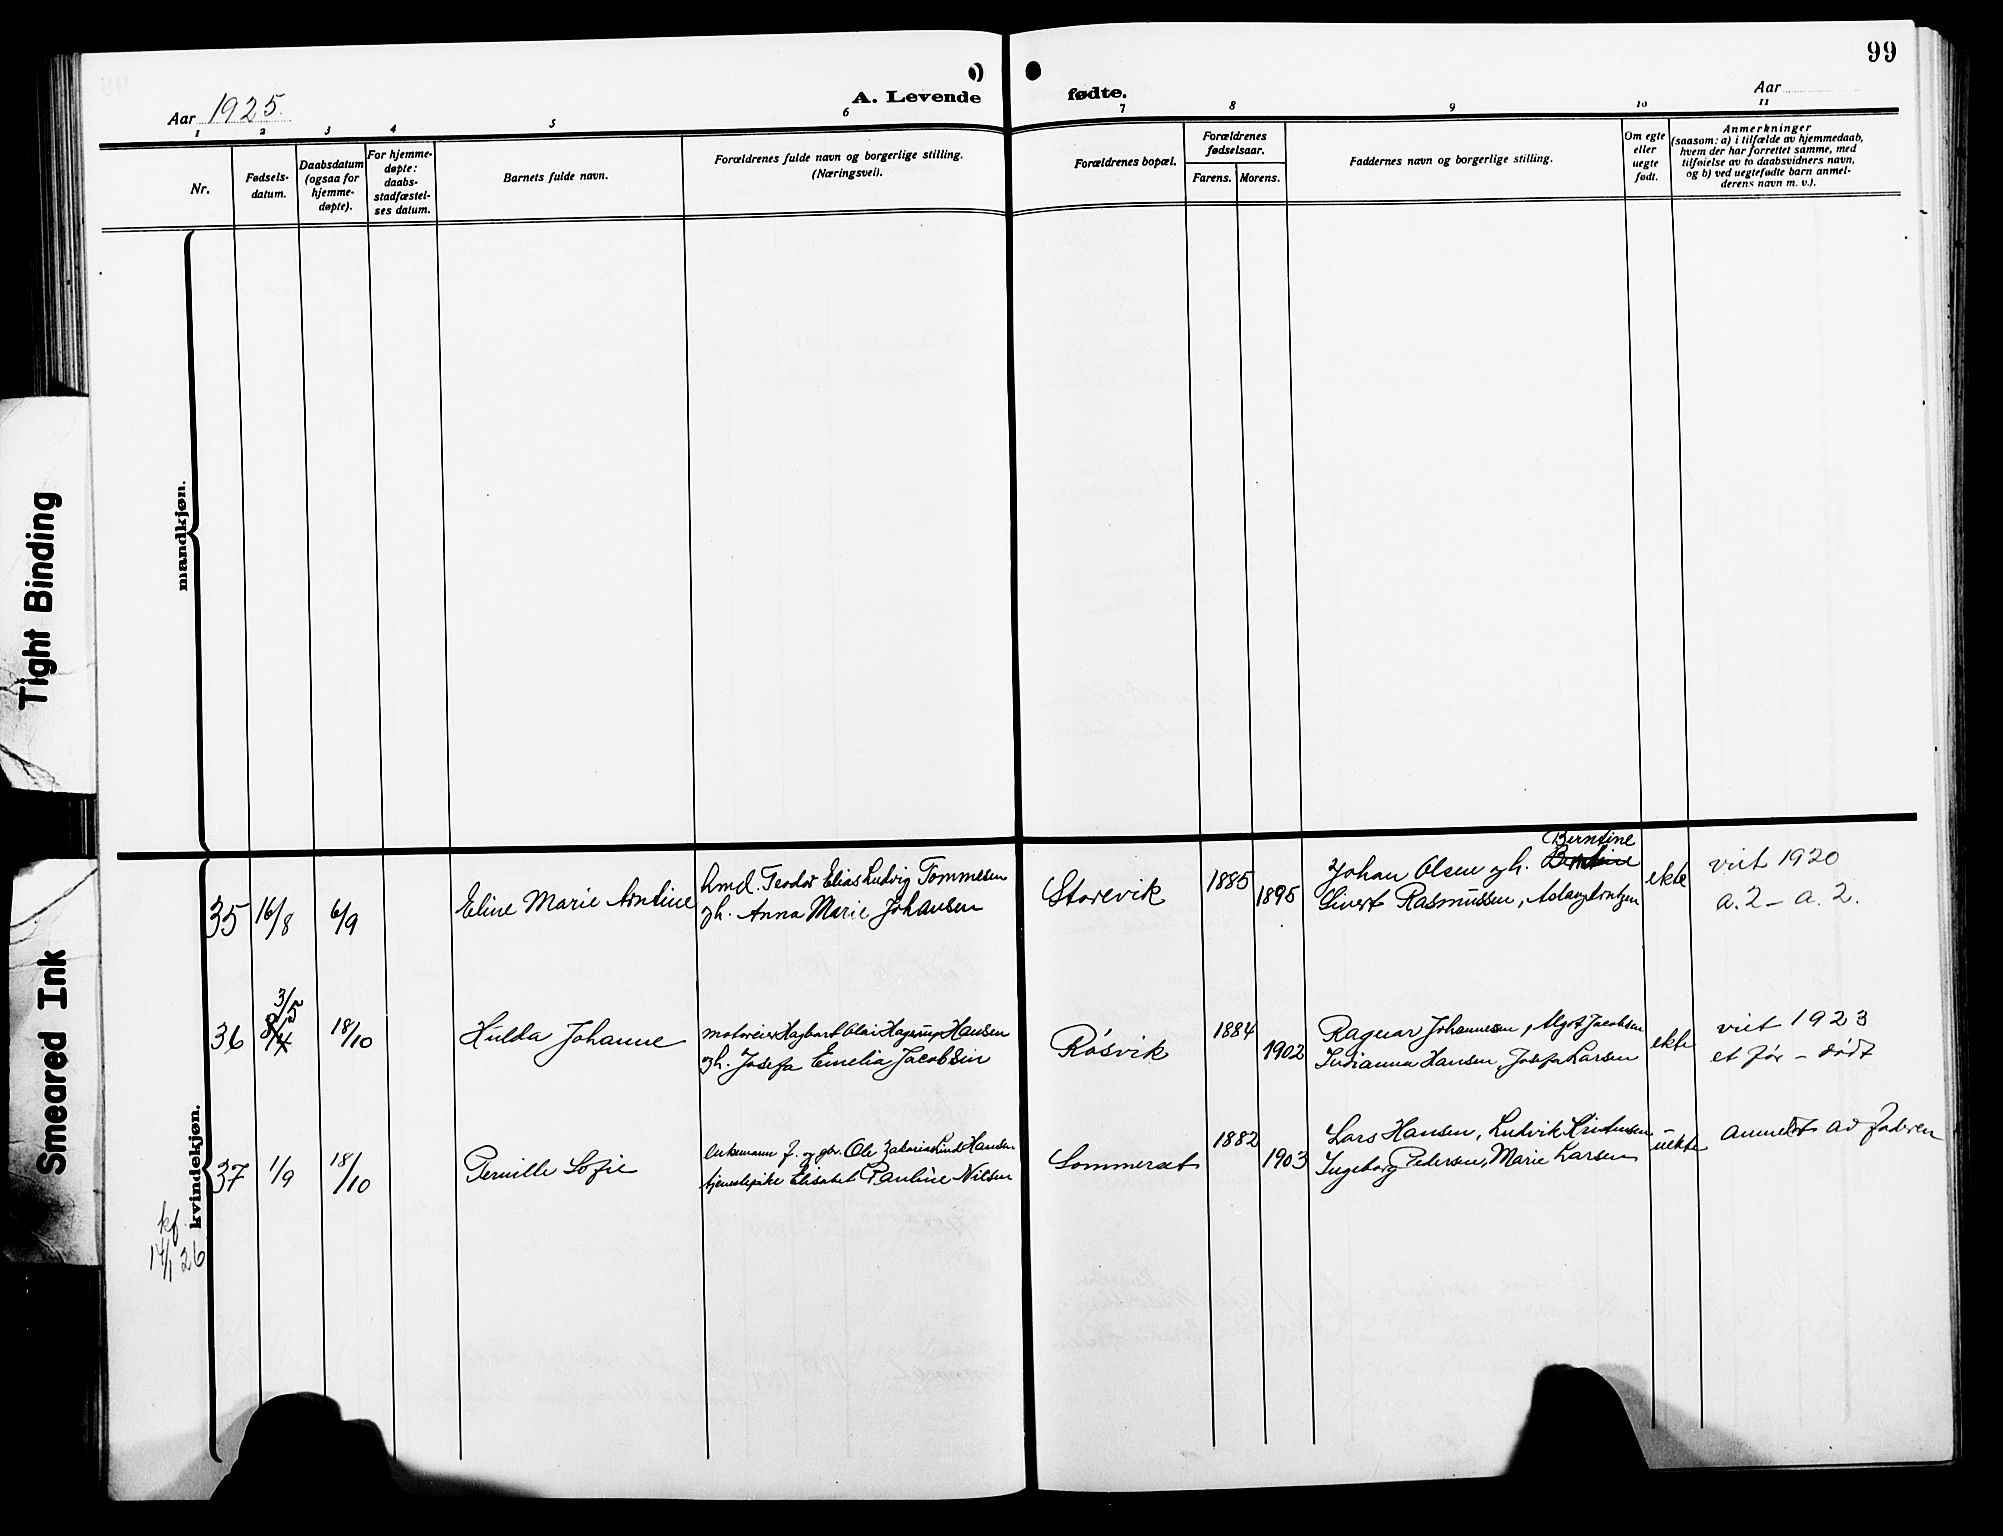 99
Aar 1925.
A. Levende
fødte.
Aar
1 2 3 4 5 6 7 8 9 10 11
Nr.
Fødsels-
datum.
Daabsdatum
(ogsaa for
hjemme-
døpte).
For hjemme-
døpte:
daabs-
stadfæstel-
ses datum.
Barnets fulde navn.
Forældrenes fulde navn og borgerlige stilling.
(Næringsvei).
Forældrenes bopæl.
Forældrenes
fødselsaar.
Farens. Morens.
Faddernes navn og borgerlige stilling.
Om egte
eller
uegte
født.
Anmerkninger
(saasom: a) i tilfælde av hjemmedaab,
hvem der har forrettet samme, med
tilføielse av to daabsvidners navn,
og b) ved uegtefødte barn anmel-
derens navn m. v.).
mandkjøn.
Tight Binding
Smeared Ink
kvindekjøn.
35 16/8 6/9 Eline Marie Arntine
Teodor Elias Ludvig Tommesen
gh. Anna Marie Johansen
Storevik 1885 1895
Berntine
Johan Olsen gh. Berntine
Sivert Rasmussen, Aslaug Arntzen
ekte
viet 1920
a. 2 – a. 2.
36 3/5 8/4 18/10 Hulda Johanne
motoreier Hagbart Olai Hagerup Hansen
gh. Josefa Emelia Jacobsen
Røsvik 1884 1902
Ragnar Johannesen, Algot Jacobsen
Indianna Hansen, Josefa Larsen
ekte
viet 1923
et før – dødt
37 1/9 18/10 Pernille Sofie
enkemann f. og gbr. Ole Zakarias Lind Hansen
tjenestepike Elisabet Pauline Nilsen
Sommerset 1882 1903
Lars Hansen, Ludvik Kristensen
Ingeborg Pedersen, Marie Larsen
uekte
anmeldt av faderen
kf.
14/1 26